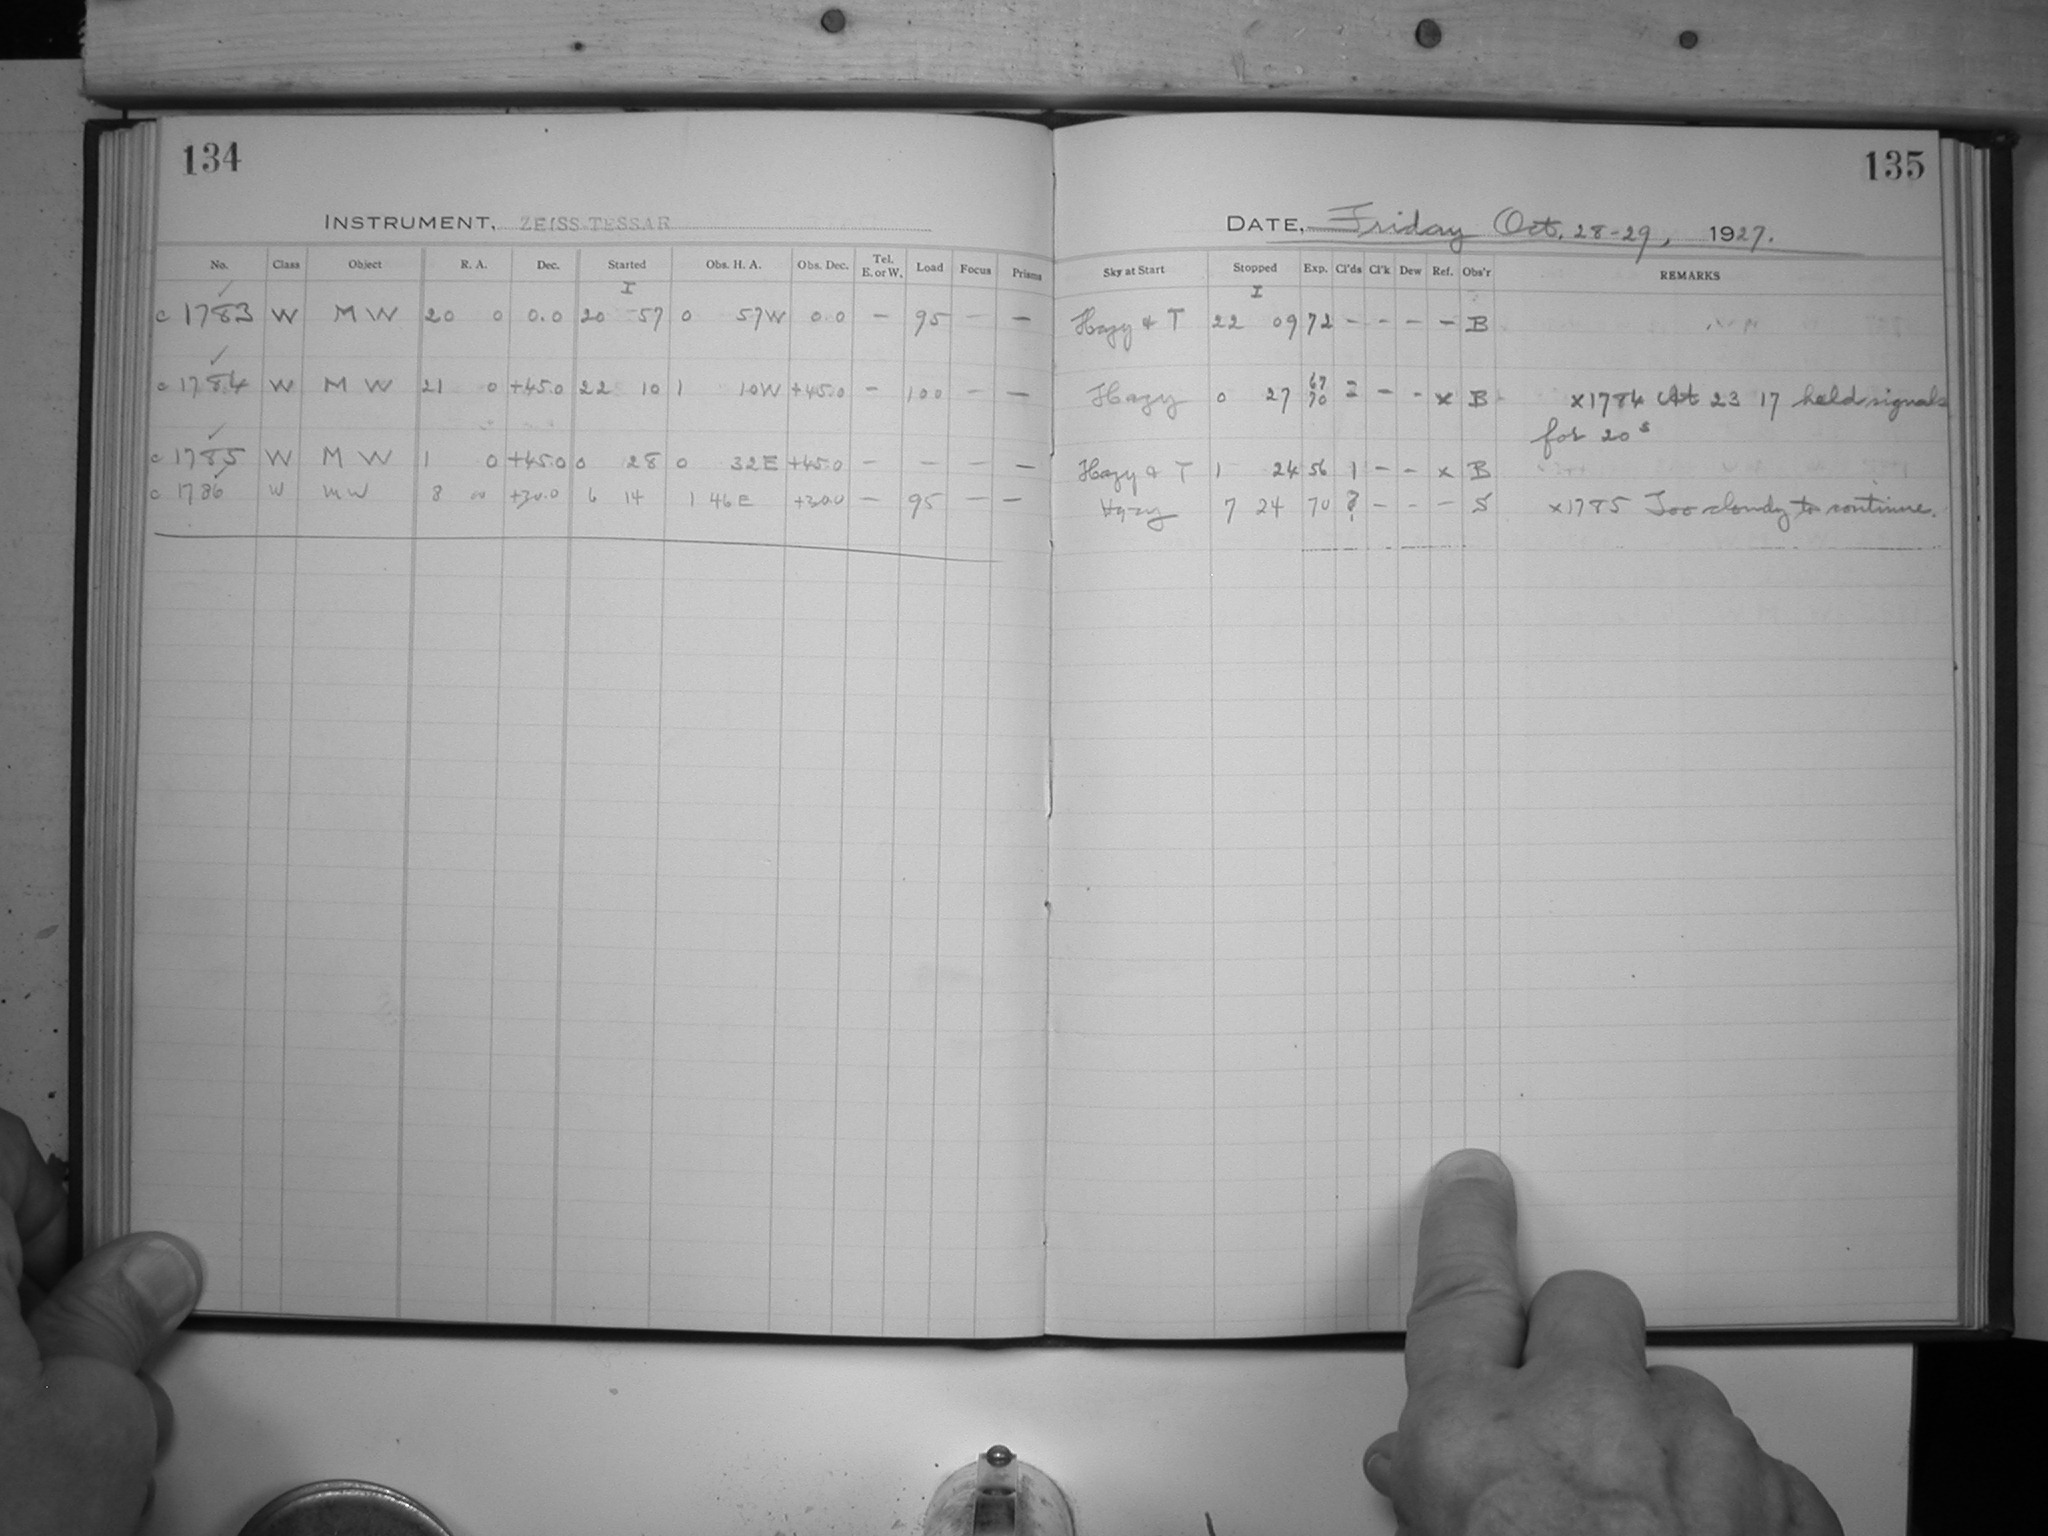 134
INSTRUMENT, ZEISS-TESSAR
No. Class Object R. A. Dec. Started Obs. H. A. Obs. Dec. Tel. E. or W. Load Focus Prisms
I
c 1783 W M W 20 0 0.0 20 57 0 57W 0.0 - 95 - -
c 1784 W M W 21 0 +45.0 22 10 1 10W +45.0 - 100 - -
c 1785 W M W 1 0 +45.0 0 28 0 32E +45.0 - - - -
c 1786 W MW 8 00 +30.0 6 14 1 46E +30.0 - 95 - -
135
DATE, Friday Oct. 28-29, 1927.
Sky at Start Stopped Exp. Cl'ds Cl'k Dew Ref. Obs'r REMARKS
I
Hazy & T 22 09 72 - - - - B
Hazy 0 27 67 70 - - x B x1784 At 23 17 held signals
for 20 s
Hazy & T 1 24 56 1 - - x B
Hazy 7 24 70 ? - - - S x1785 Too cloudy to continue.